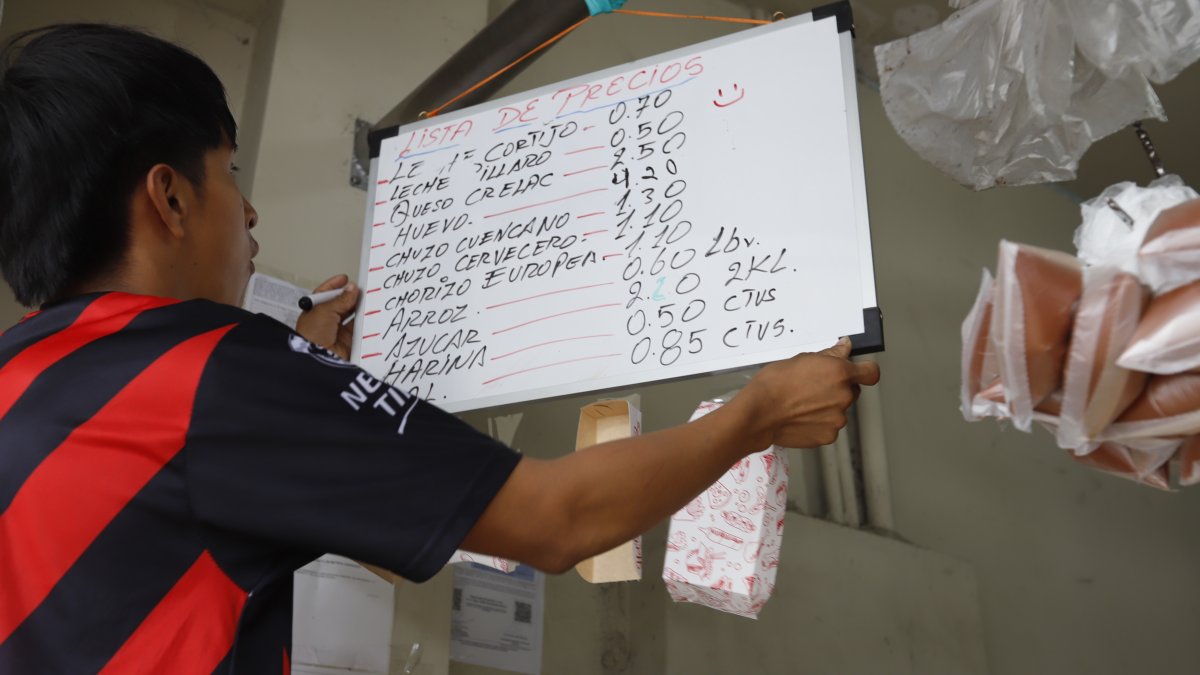 LISTA DE PRECIOS
CORTIJO 0.70
LECHE PILLARO 0.50
QUESO CRELAC 2.50
HUEVO 4.20
CHUZO CUENCANO 1.30
CHUZO CERVECERO 1.10
CHORIZO EUROPEA 1.10
ARROZ 0.60 Lbv.
AZUCAR 2.20 2KL.
HARINA 0.50 CTVS
0.85 CTVS.